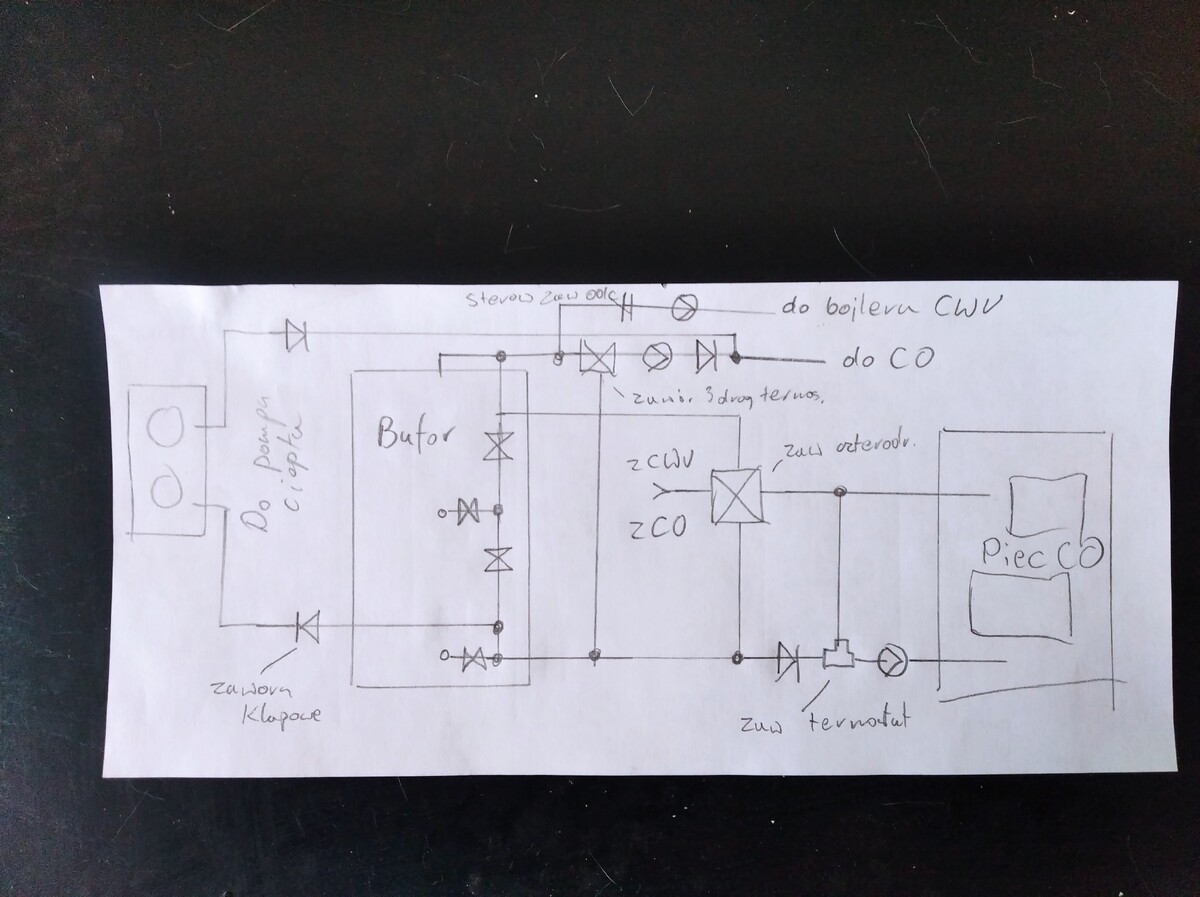 sterow zaw odc
do bojlera CWU
do CO
zawór 3 drog termos.
Bufor
Do pompa
ciepła
z CWU
z CO
zaw czterodr.
Piec CO
zawora
Klapowe
zaw termostat